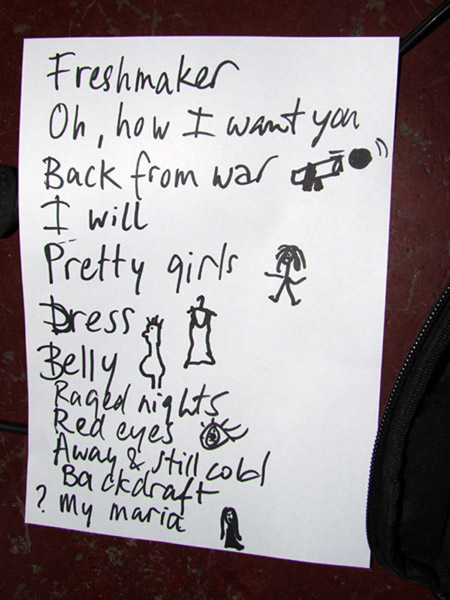 Freshmaker
Oh, how I want you
Back from war
I will
Pretty girls
Dress
Belly
Raged nights
Red eyes
Away & still cold
Backdraft
? My maria